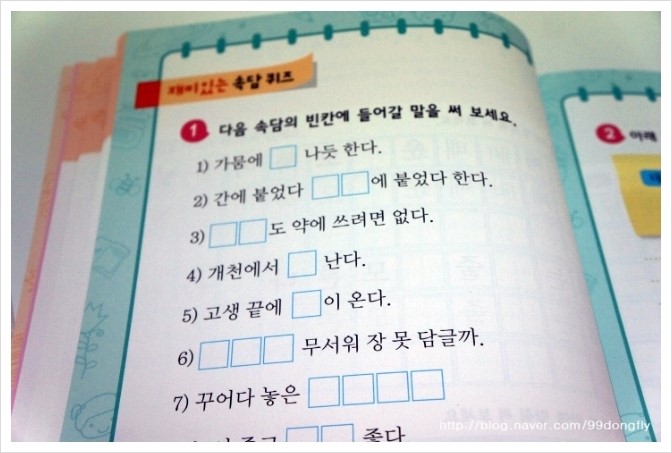 재미있는 속담 퀴즈
1 다음 속담의 빈칸에 들어갈 말을 써 보세요.
1) 가뭄에 □ 나듯 한다.
2) 간에 붙었다 □□에 붙었다 한다.
3) □□도 약에 쓰려면 없다.
4) 개천에서 □ 난다.
5) 고생 끝에 □이 온다.
6) □□□ 무서워 장 못 담글까.
7) 꾸어다 놓은 □□□□
□□ 좋다
2 아래
http://blog.naver.com/99dongfly